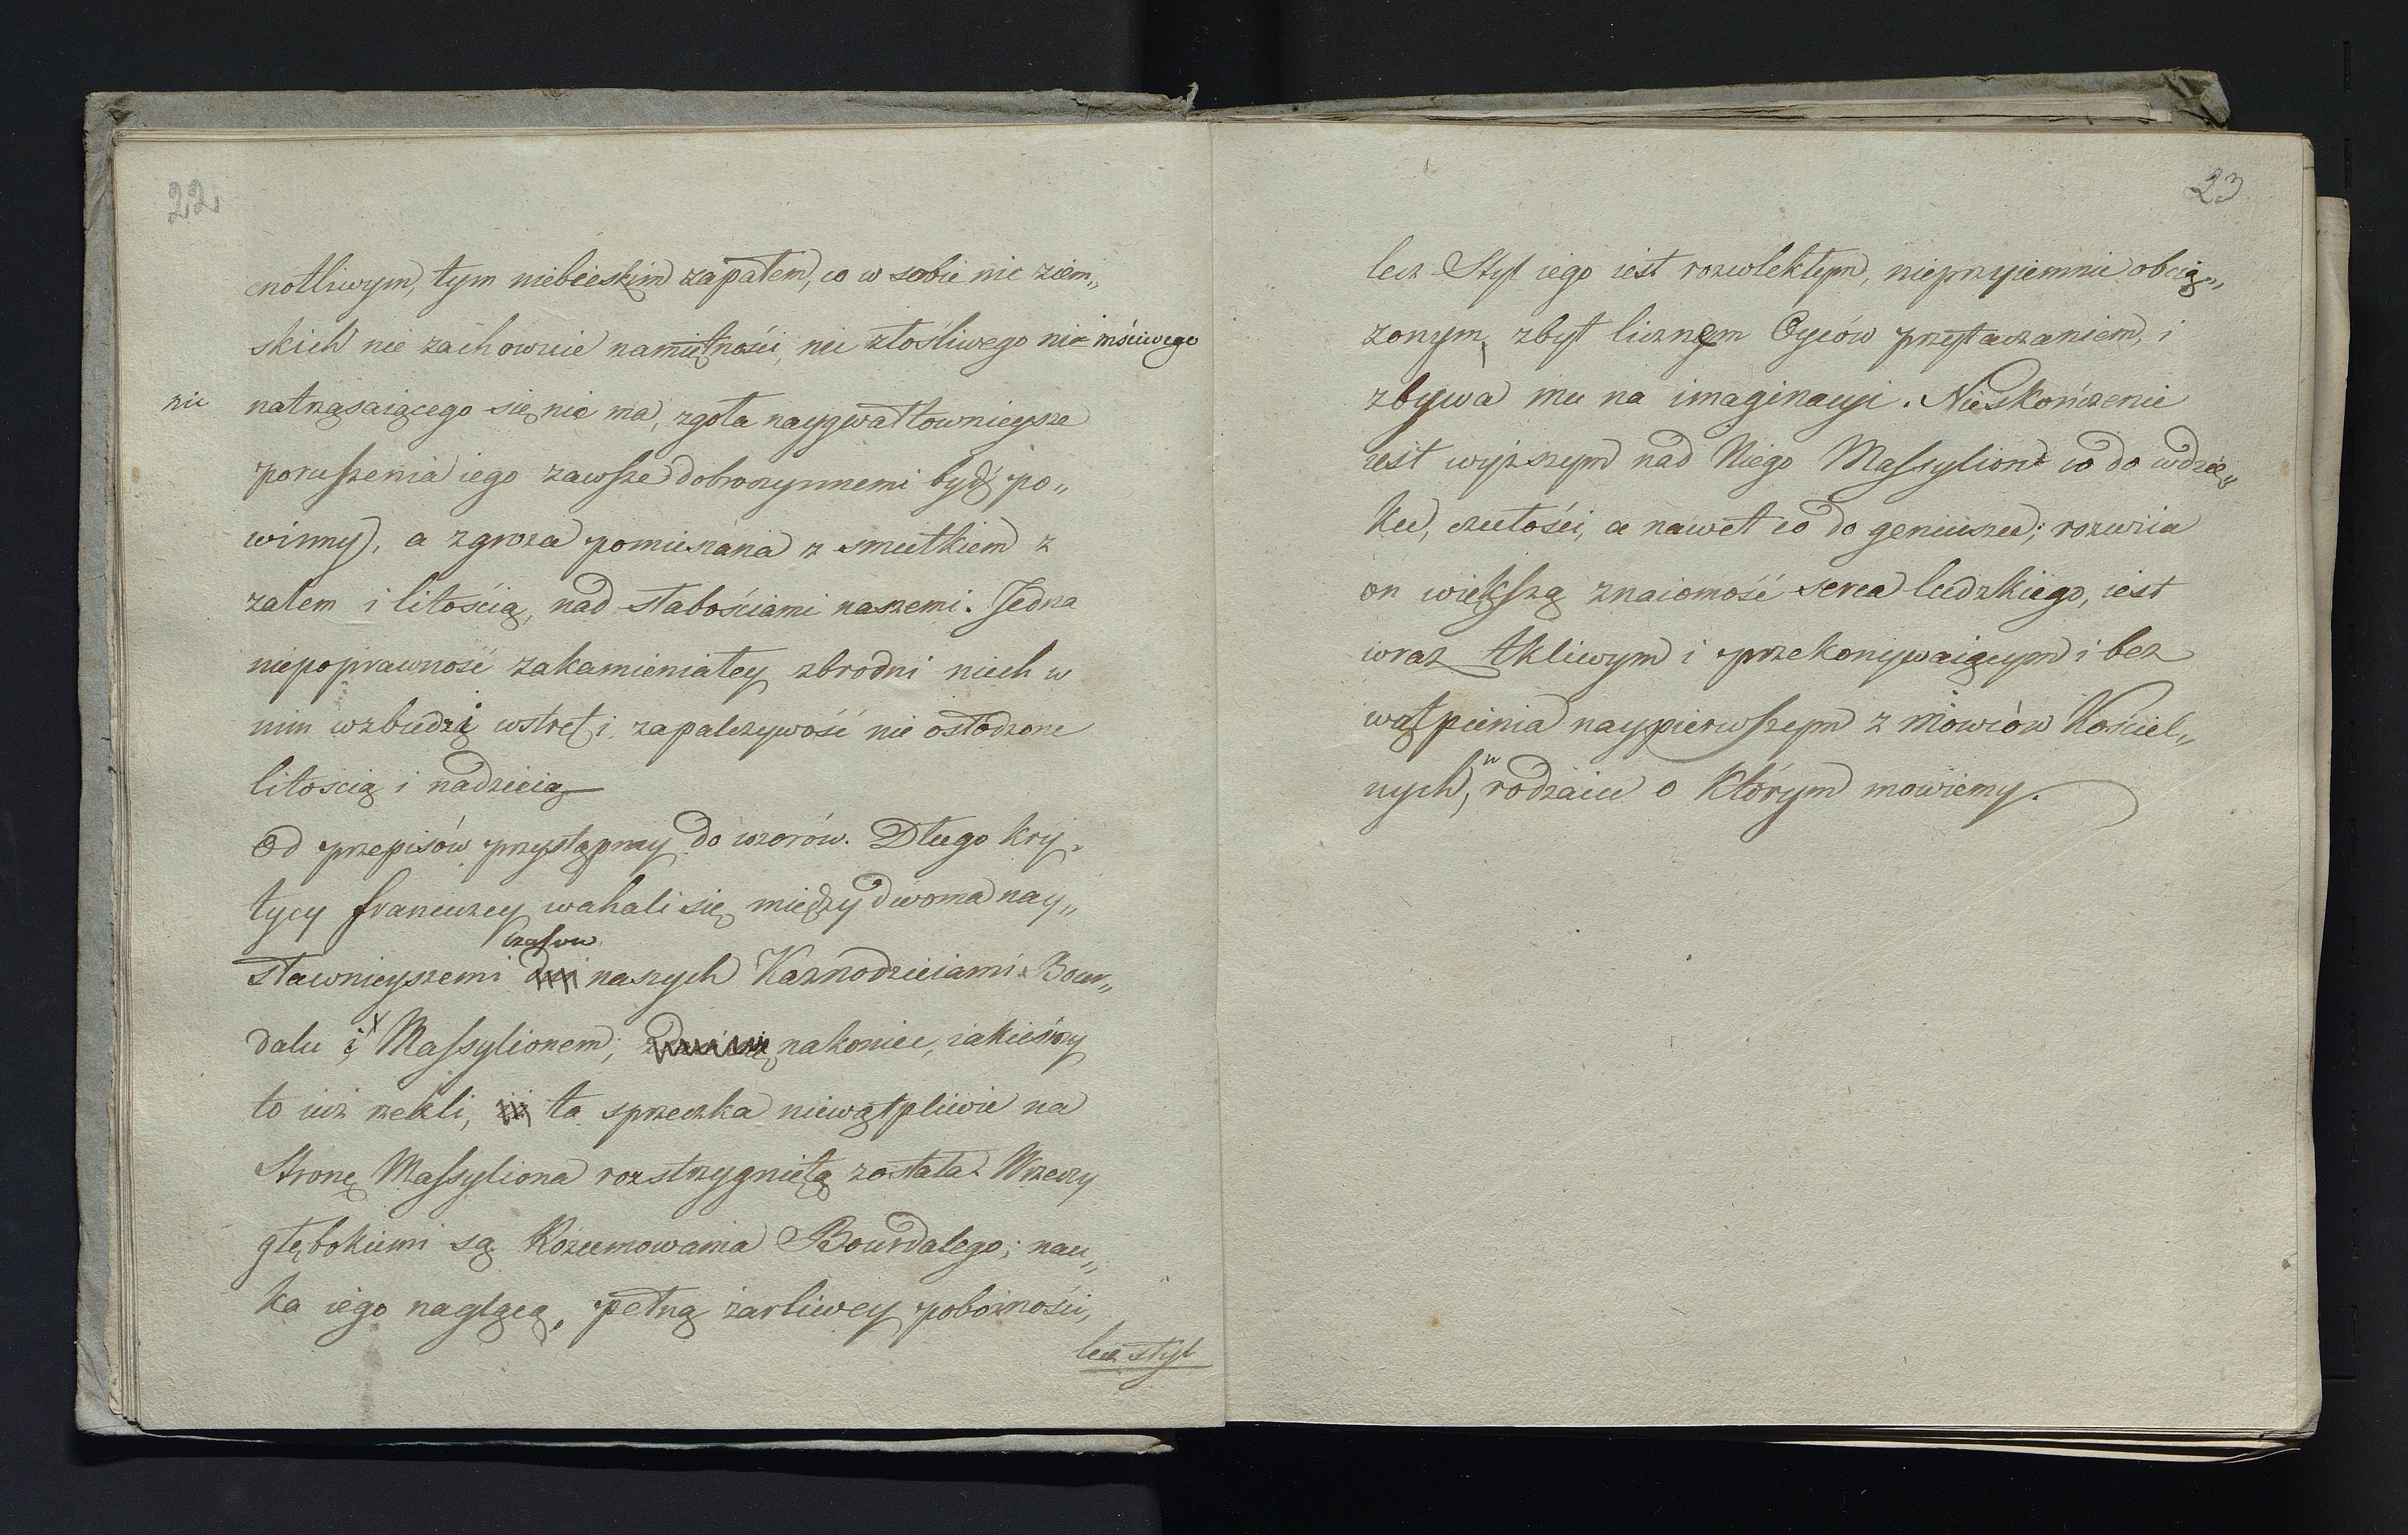 22
cnotliwym, tym niebieskim zapałem, co w sobie nic ziem„
skich nie zachowuie namiętności, nic złośliwego nic mściwego
nic natrząsaiącego się nie ma, zgoła naygwałtownieysze
poruszenia iego zawsze dobroczynnemi bydź po„
winny, a zgroza pomieszana z smutkiem z
żalem i litością, nad słabościami naszemi. Jedna
niepoprawność zakamieniałey zbrodni niech w
nim wzbudzi wstręt i zapalczywość nie osłodzone
litoscią i nadzieią
Od przepisów przystąpmy do wzorów. Długo kry„
tycy francuzcy wahali się między dwoma nay„
czasow
sławnieyszemi dni naszych Kaznodzieiami. Bour„
dalu i Massylionem; nakoniec, iakieśmy
to iuż rzekli, iż ta sprzeczka niewątpliwie na
Stronę Massyliona rozstrzygniętą została. Wrzeczy
głębokiemi są Rozumowania Bourdalego; nau„
ka iego naglącą, pełną żarliwey pobożności,
lecz styl
23
lecz Styl iego iest rozwlekłym, nieprzyiemnie obcią„
żonym, zbyt licznem Oyców przytaczaniem, i
zbywa mu na imaginacyi. Nieskończenie
iest wyższym nad Niego Massylion co do wdzię„
ku, czułości, a nawet co do geniuszu; rozwiia
on większą znaiomość serca ludzkiego, iest
wraz tkliwym i przekonywaiącym i bez
wątpienia naypierwszym z Mowców Kościel„
w
nych, rodzaiu o którym mowiemy.